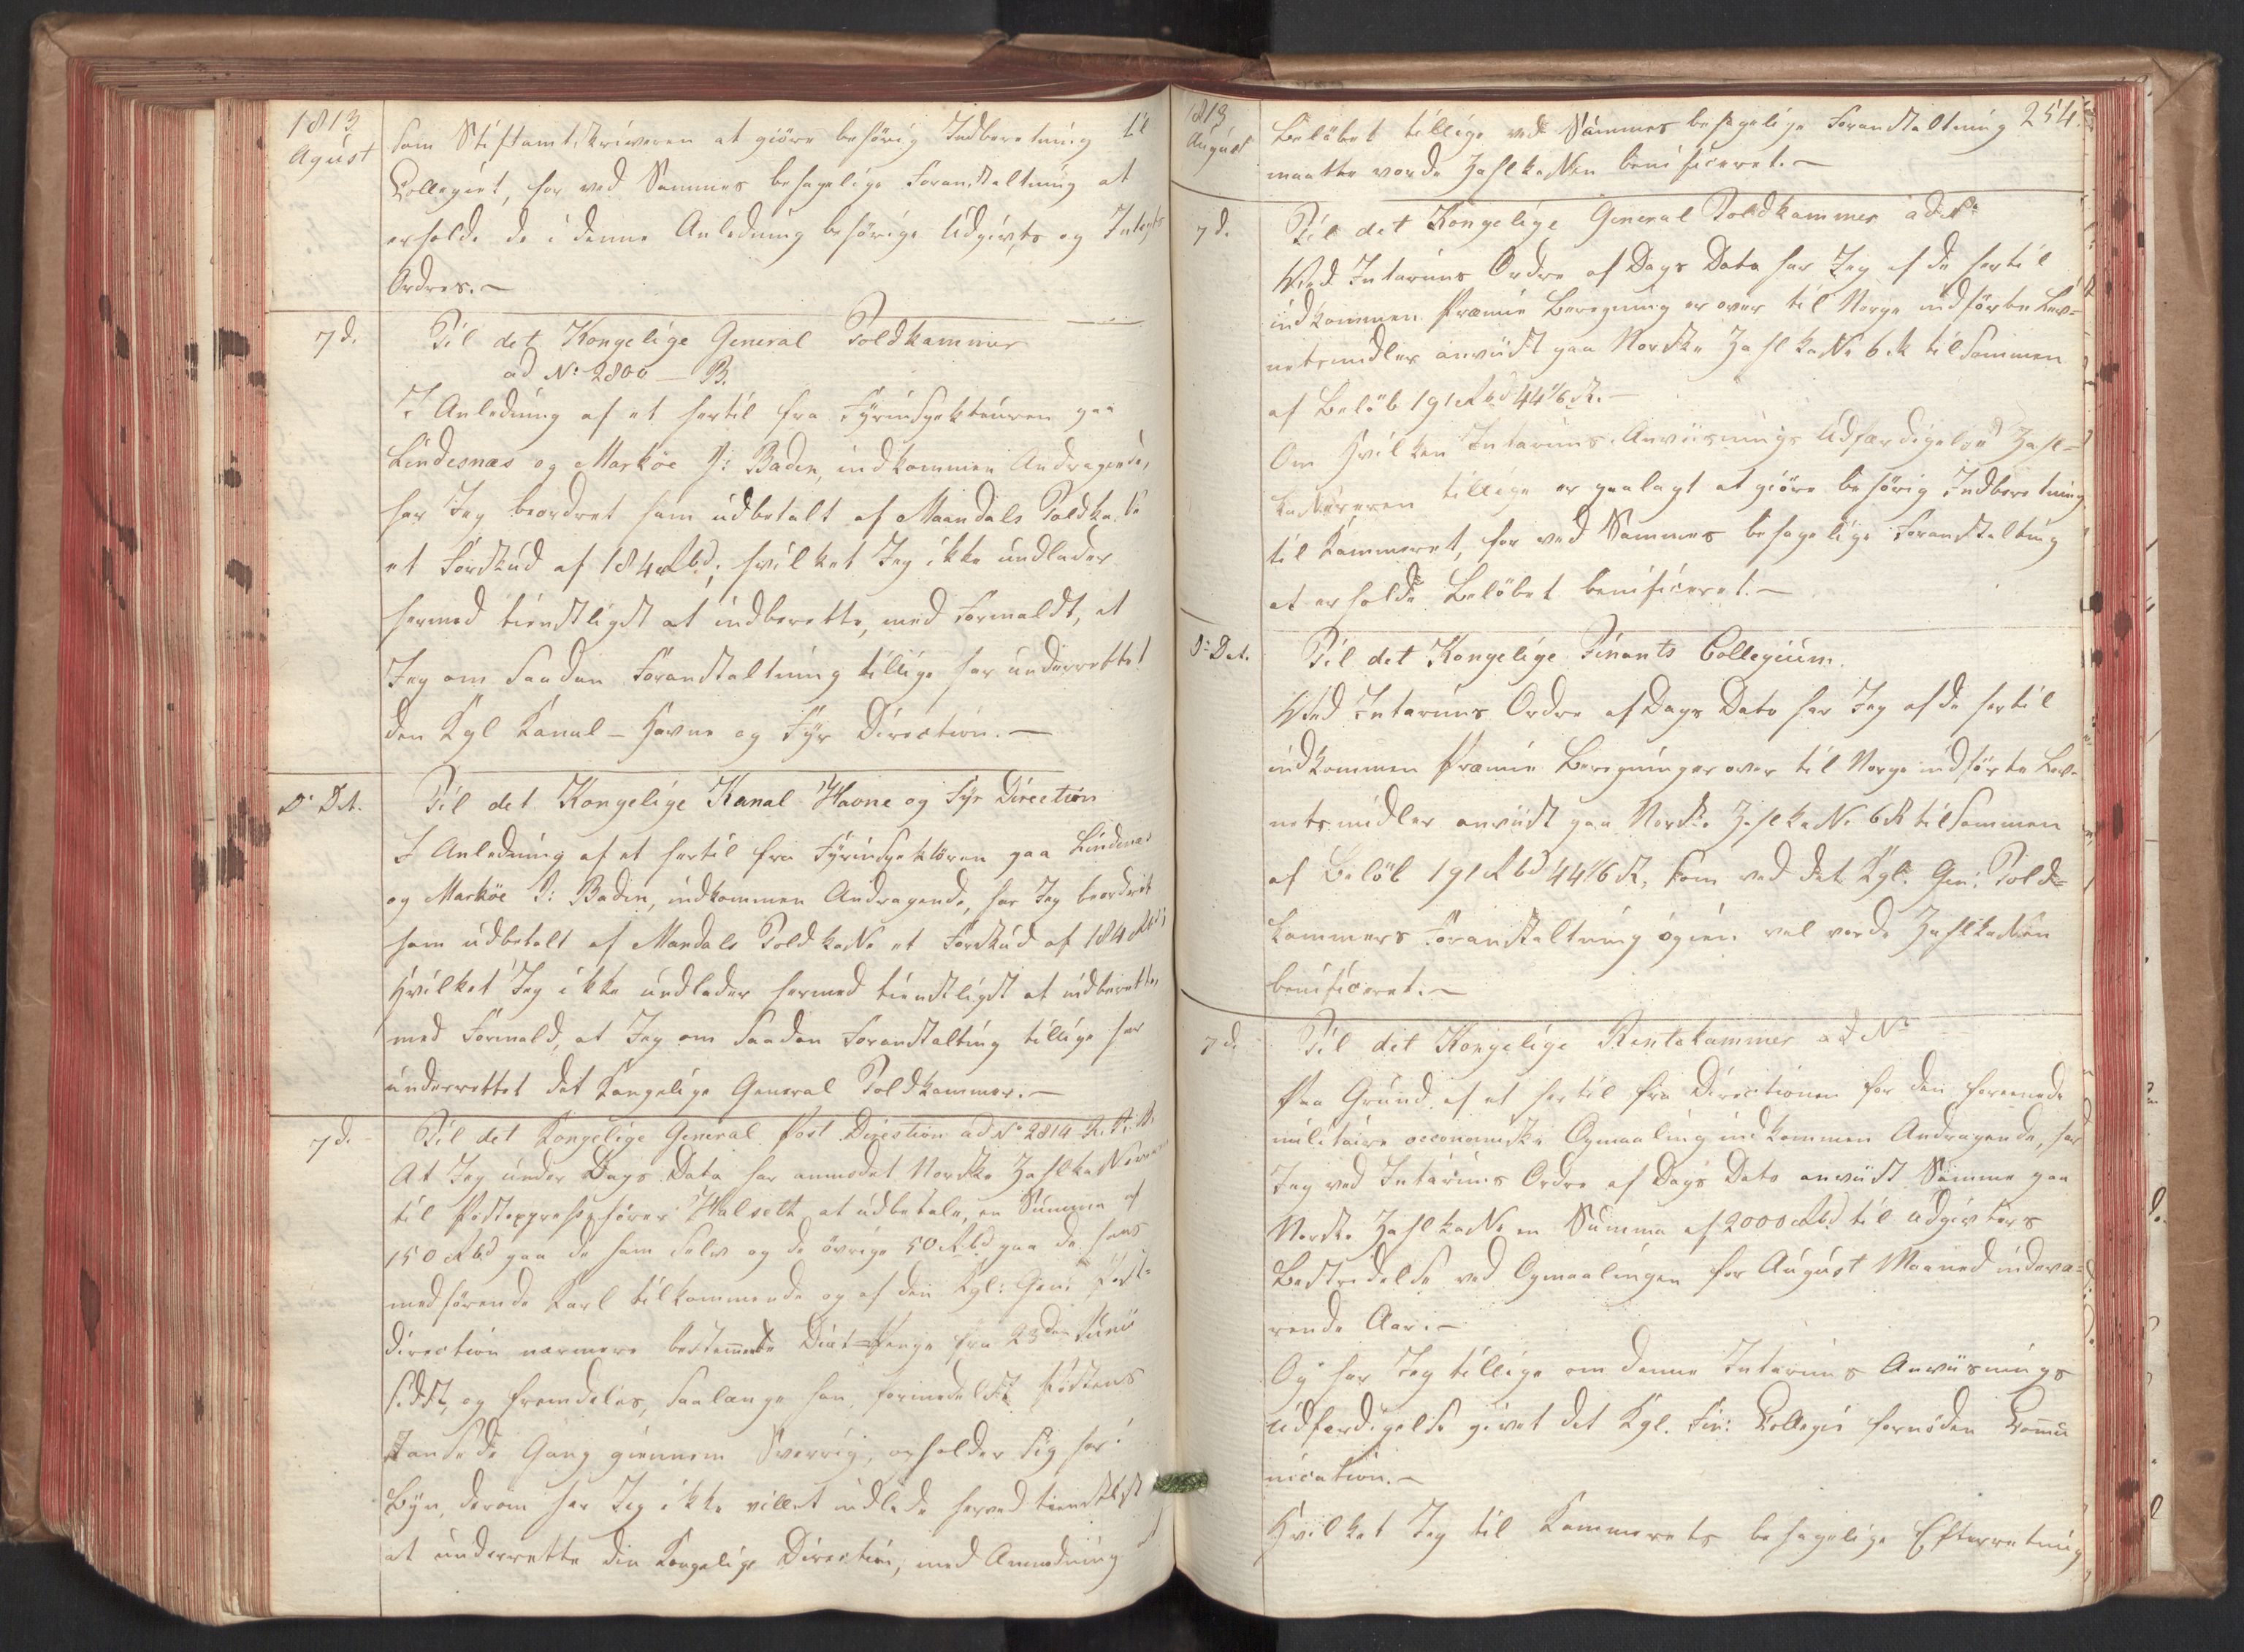 1813
Agúst
som Stiftamtskriveren at giöre behörig Indberetning til
Collegiet, for ved Sammes behagelige Foranstaltning at
erholde de i denne Anledning behörige Udgivts og Indtegts
Ordres.
7 d. Til det Kongelige General Toldkammer
ad No: 2800 — B.
I Anledning af et hertil fra Fyrinspekteuren paa
Lindesnæs og Markøe J: Baden, indkommen Andragende,
har Jeg beordret ham udbetalt af Maandals Toldkasse
et Forskud af 184 Rbd; hvilket Jeg ikke undlader
hermed tienstligst at indberette, med Formeldt, at
Jeg om saadan Foranstaltning tillige har underrettet
den Kgl Kanal- Havne og Fyr Direction. —
Do Dat. Til det Kongelige Kanal Havne og Fyr Direction
I Anledning af et hertil fra Fyrinspektören paa Lindenæs
og Markøe J: Baden, indkommen Andragende, har Jeg beordret
ham udbetalt af Mandals Toldkasse et Forskud af 184 Rbd;
Hvilket Jeg ikke undlader hermed tienstligst at indberette,
med Formeld, at Jeg om saadan Foranstalting tillige har
underrettet det Kongelige General Toldkammer. —
7 d. Til det Kongelige General Post Direction ad No 2814
At Jeg under Dags Dato har anmodet Norske Zahlkasserer
til Postexpresfører Halseth at udbetale, en Summa af
150 Rbd paa de ham selv og de øvrige 50 Rbd paa de hans
medførende Karl tilkommende og af den Kgl: Gen: Post-
direction nærmere bestemmte Diæt-Penge fra 23den Junii
sidst, og fremdeles, saalænge han, formedelst Postens
standsede Gang giennem Sverrig, opholder sig her i
Byen, derom har Jeg ikke villet undlade herved tienstligst
at underrette den Kongelige Direction, med Anmodning
1813
August
254.
Beløbet tillige ved Sammes behagelige Foranstaltning
maatte vorde Zahlkassen beneficeret. —
7 d. Til det Kongelige General Toldkammer ad No
Ved Interims Ordre af Dags Dato har Jeg af de hertil
indkommen Præmie Beregning er over til Norge indførte Lev-
netsmidler anviist paa Norske Zahlkasse 6 st tilsammen
af Beløb 191 Rbd 44 1/6 s. —
Om Hvilken Interims Anviisnings Udfærdigelse Zahl-
kassereren tillige er paalagt at giöre behörig Indberetning
til Kammeret, for ved Sammes behagelige Foranstalting
at erholde Beløbet benificeret. —
Do Dat. Til det Kongelige Finants Collegium.
Ved Interims Ordre af Dags Dato har Jeg af de hertil
indkommen Præmie Beregninger over til Norge indførte Lev-
netsmidler anviist paa Norske Zahlkasse 6 st tilsammen
af Beløb 191 Rbd 44 1/6 s, som ved det Kgl: Gen: Told-
kammers Foranstaltning igien vel vorde Zahlkassen
benificeret. —
7 d. Til det Kongelige Rentekammer ad No
Paa Grund af et hertil fra Directionen for den foreenede
militaire oeconomiske Opmaaling indkommen Andragende, har
Jeg ved Interims Ordre af Dags Dato anviist Samme paa
Norske Zahlkasse en Summa af 2000 Rbd til Udgivters
Bestridelse ved Opmaalingen for August Maaned indevæ-
rende Aar. —
Og har Jeg tillige om denne Interims Anviisnings
Udfærdigelse givet det Kgl. Fin: Collegie fornøden Commu
nication. —
Hvilket Jeg til Kammerets behagelige Efterretning